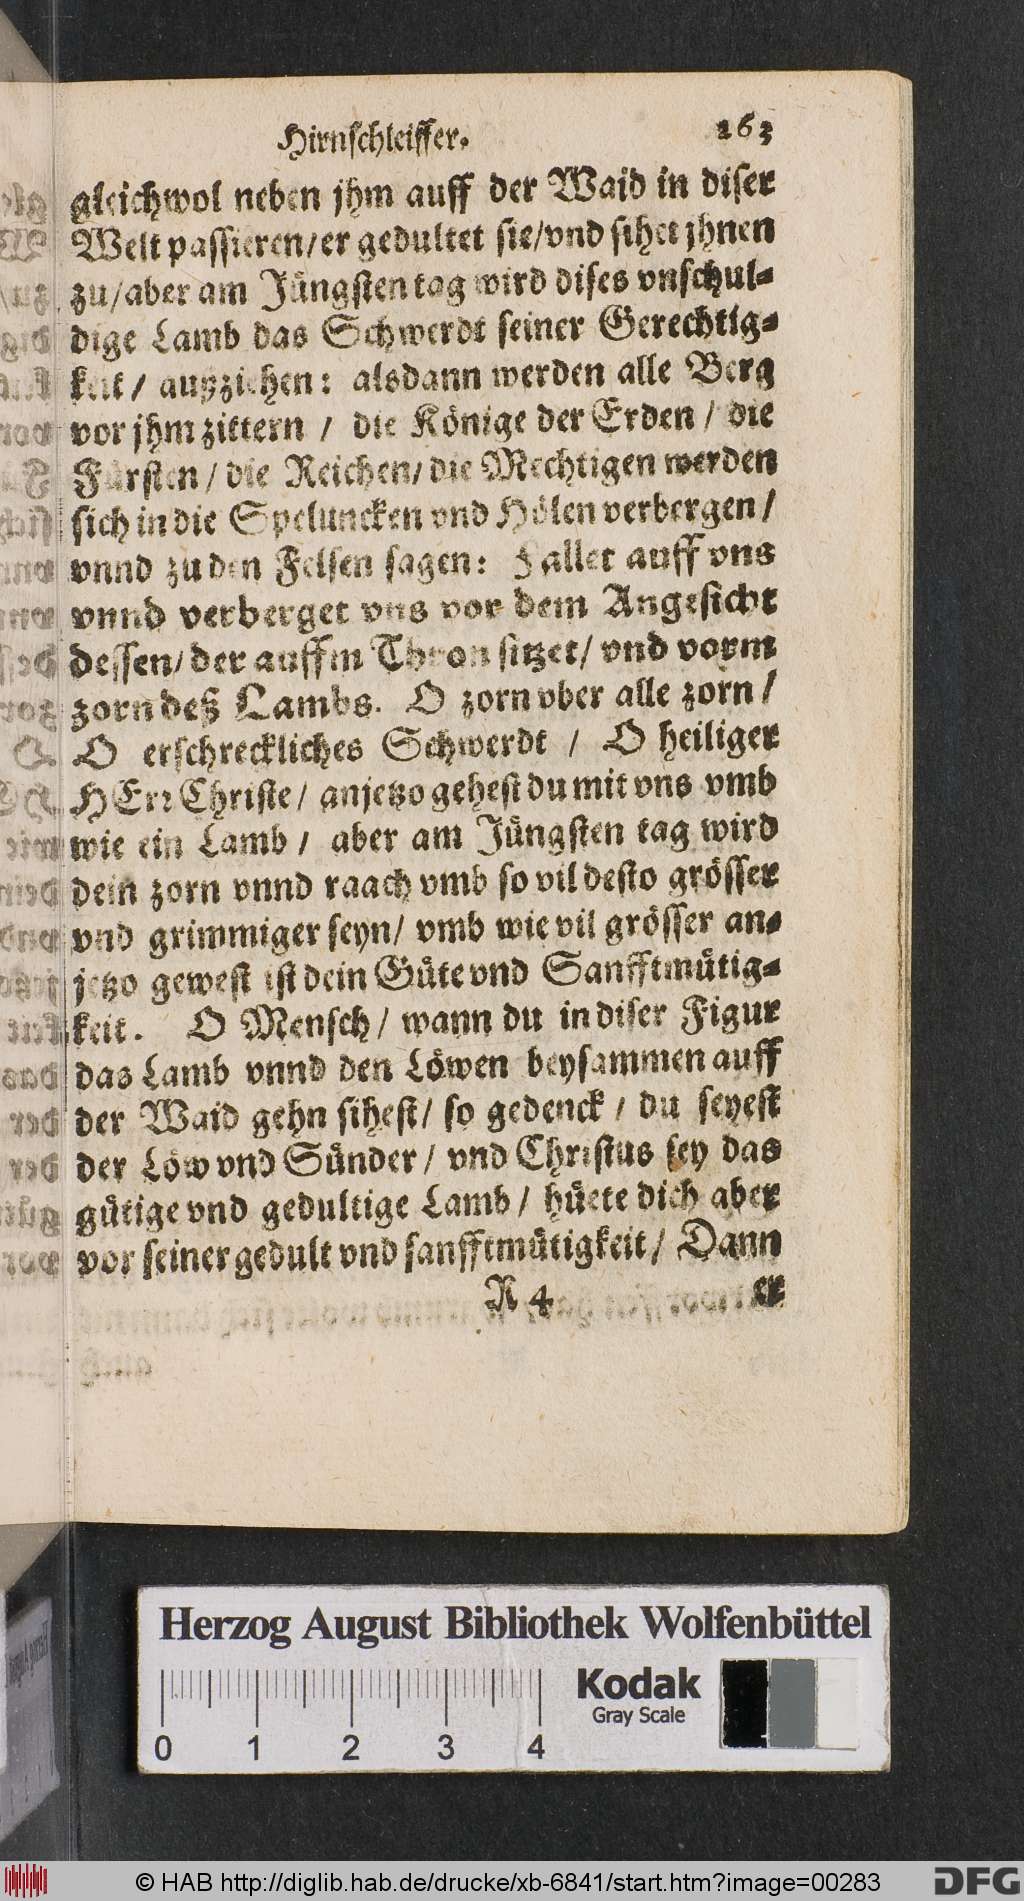 Hirnschleiffer. 263
gleichwol neben jhm auff der Waid in diser
Welt passieren/er gedultet sie/vnd sihet jhnen
zu/aber am Jüngsten tag wird dises vnschul-
dige Lamb das Schwerdt seiner Gerechtig-
keit / außziehen: alsdann werden alle Berg
vor jhm zittern / die Könige der Erden / die
Fürsten / die Reichen/ die Mechtigen werden
sich in die Speluncken vnd Hölen verbergen /
vnnd zu den Felsen sagen: Fallet auff vns
vnnd verberget vns vor dem Angesicht
dessen/ der auffm Thron sitzet/ vnd vorm
zorn deß Lambs. O zorn vber alle zorn /
O erschreckliches Schwerdt / O heiliger
HErr Christe / anjetzo gehest du mit vns vmb
wie ein Lamb / aber am Jüngsten tag wird
dein zorn vnnd raach vmb so vil desto grösser
vnd grimmiger seyn/ vmb wie vil grösser an-
jetzo gewest ist dein Güte vnd Sanfftmütig-
keit. O Mensch / wann du in diser Figur
das Lamb vnnd den Löwen beysammen auff
der Waid gehn sihest/ so gedenck / du seyest
der Löw vnd Sünder / vnd Christus sey das
gütige vnd gedultige Lamb / hüete dich aber
vor seiner gedult vnd sanfftmütigkeit / Dann
R 4 er
Herzog August Bibliothek Wolfenbüttel
0 1 2 3 4
Kodak
Gray Scale
© HAB http://diglib.hab.de/drucke/xb-6841/start.htm?image=00283
DFG